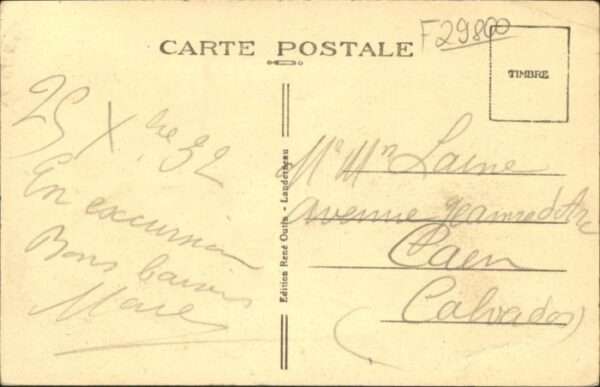 CARTE POSTALE
F29800
TIMBRE
25 Xbre 32
En excursion
Bons baisers
Edition René Outin - Landerneau
Mr Mm Laine
avenue Jeanne d'Arc
Caen
(Calvados)